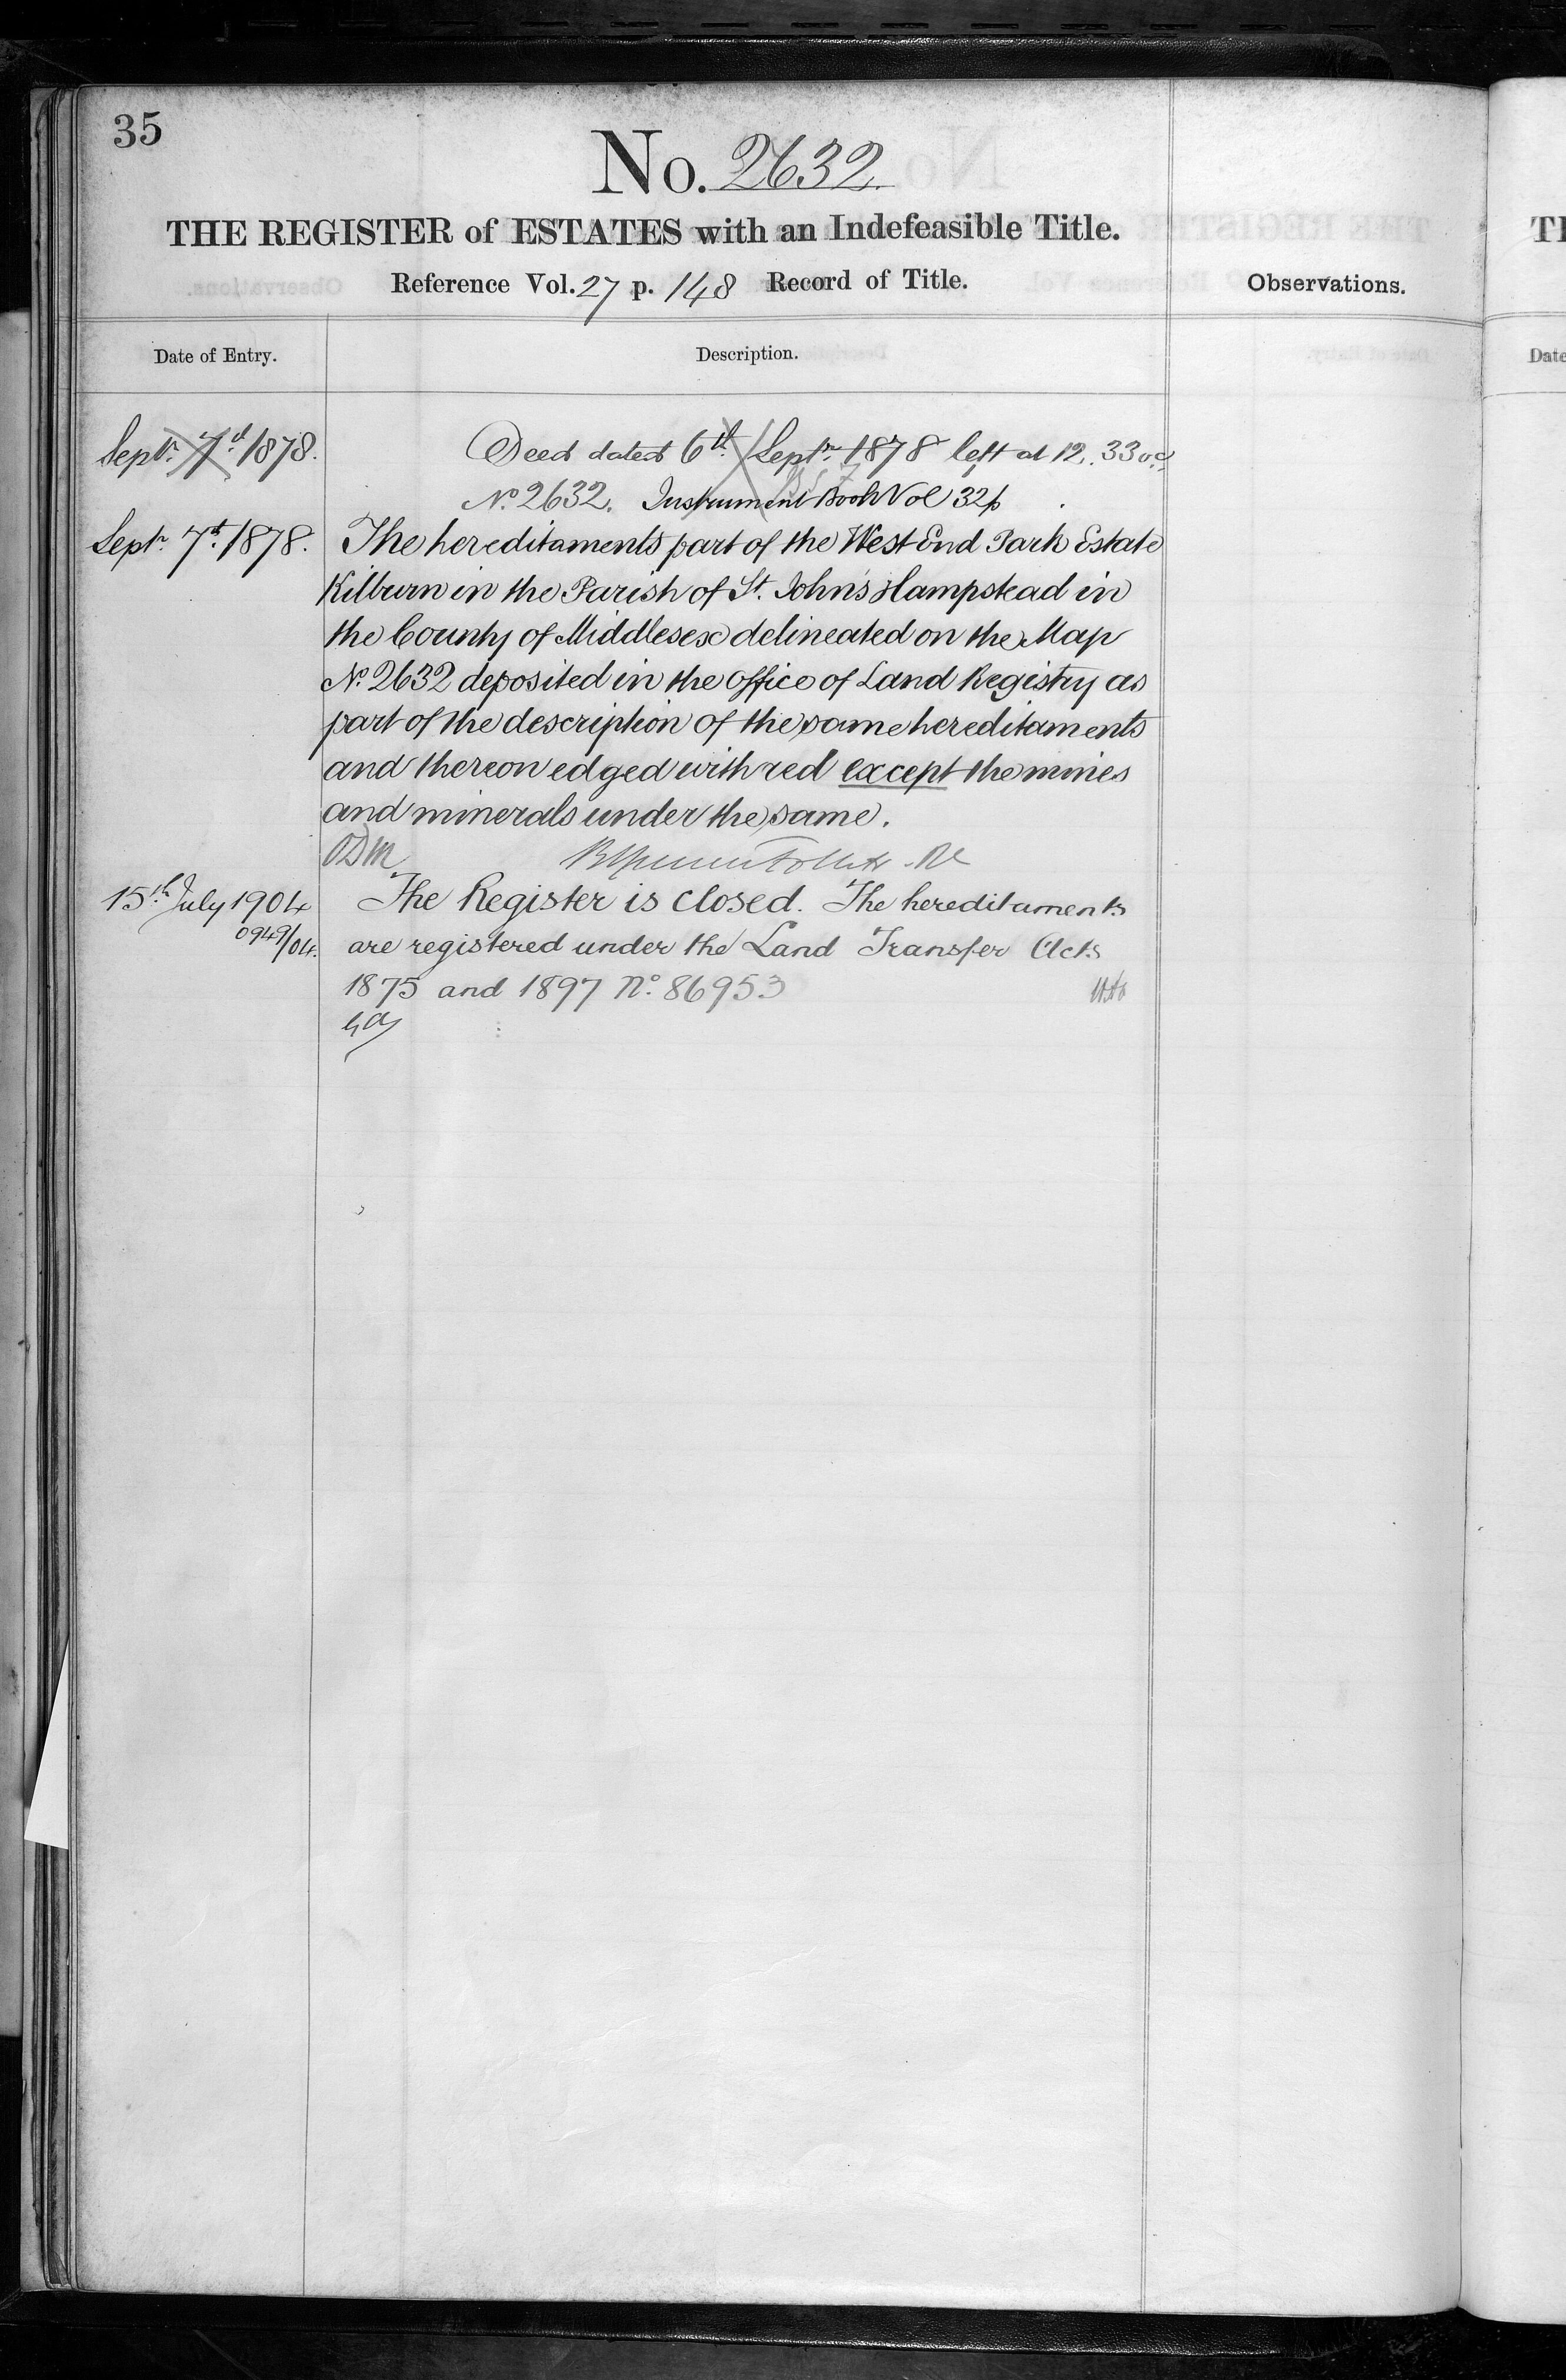 35
No. 2632.
THE REGISTER of ESTATES with an Indefeasible Title.
Reference Vol. 27 p. 148 Record of Title.
Observations.
Date of Entry.
Description.
Septr. 7th 1878.
Deed dated 6th Septr. 1878 left at 12.33
No. 2632. Instrument Book Vol 32 p
Septr. 7th. 1878.
The hereditaments part of the West End Park Estate
Kilburn in the Parish of St. John's Hampstead in
the County of Middlesex delineated on the Map
No. 2632 deposited in the office of Land Registry as
part of the description of the same hereditaments
and thereon edged with red except the mines
and minerals under the same.
ODM
15th July 1904
0949/04.
The Register is closed. The hereditaments
are registered under the Land Transfer Acts
1875 and 1897 No. 86953